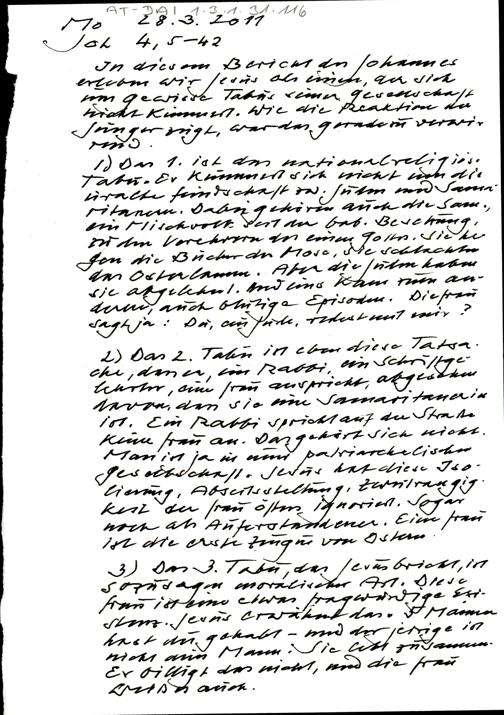 AT-DAI 1.3.1.31.116
Mo 28.3.2011
Joh 4,5-42
In diesem Bericht des Johannes
erleben wir Jesus als einen, der sich
um gewisse Tabus seiner Gesellschaft
nicht kümmert. Wie die Reaktion der
Jünger zeigt, war das geradezu verwir-
rend.
1) Das 1. ist das nationalreligiös.
Tabu. Er kümmert sich nicht um die
uralte Feindschaft zw. Juden und Sama-
ritanern. Dabei gehören auch die Sam.,
ein Mischvolk seit der bab. Besetzung,
zu den Verehrern des einen Gottes. Sie
die Bücher des Mose, sie schlachten
das Osterlamm. Aber die Juden haben
sie abgelehnt. Und eins kam zum an-
deren, auch blutige Episoden. Die Frau
sagt ja: Du, ein Jude, redest mit mir?
2) Das 2. Tabu ist eben diese Tatsa-
che, dass er, ein Rabbi, ein Schriftge-
lehrter, eine Frau anspricht, abgesehen
davon, dass sie eine Samaritanerin
ist. Ein Rabbi spricht auf der Straße
keine Frau an. Das gehört sich nicht.
Man ist ja in einer patriarchalischen
Gesellschaft. Jesus hat diese Iso-
lierung, Abseitsstellung, Zweitrangig-
keit der Frau öfters ignoriert. Sogar
noch als Auferstandener. Eine Frau
ist die erste Zeugin von Ostern.
3) Das 3. Tabu, das Jesus bricht, ist
sozusagen moralischer Art. Diese
Frau ist eine etwas fragwürdige Exi-
stenz. Jesus erwähnt das. 5 Männer
hast du gehabt - und der jetzige ist
nicht dein Mann. Sie lebt zusammen.
Er billigt das nicht, und die Frau
weiß es auch.